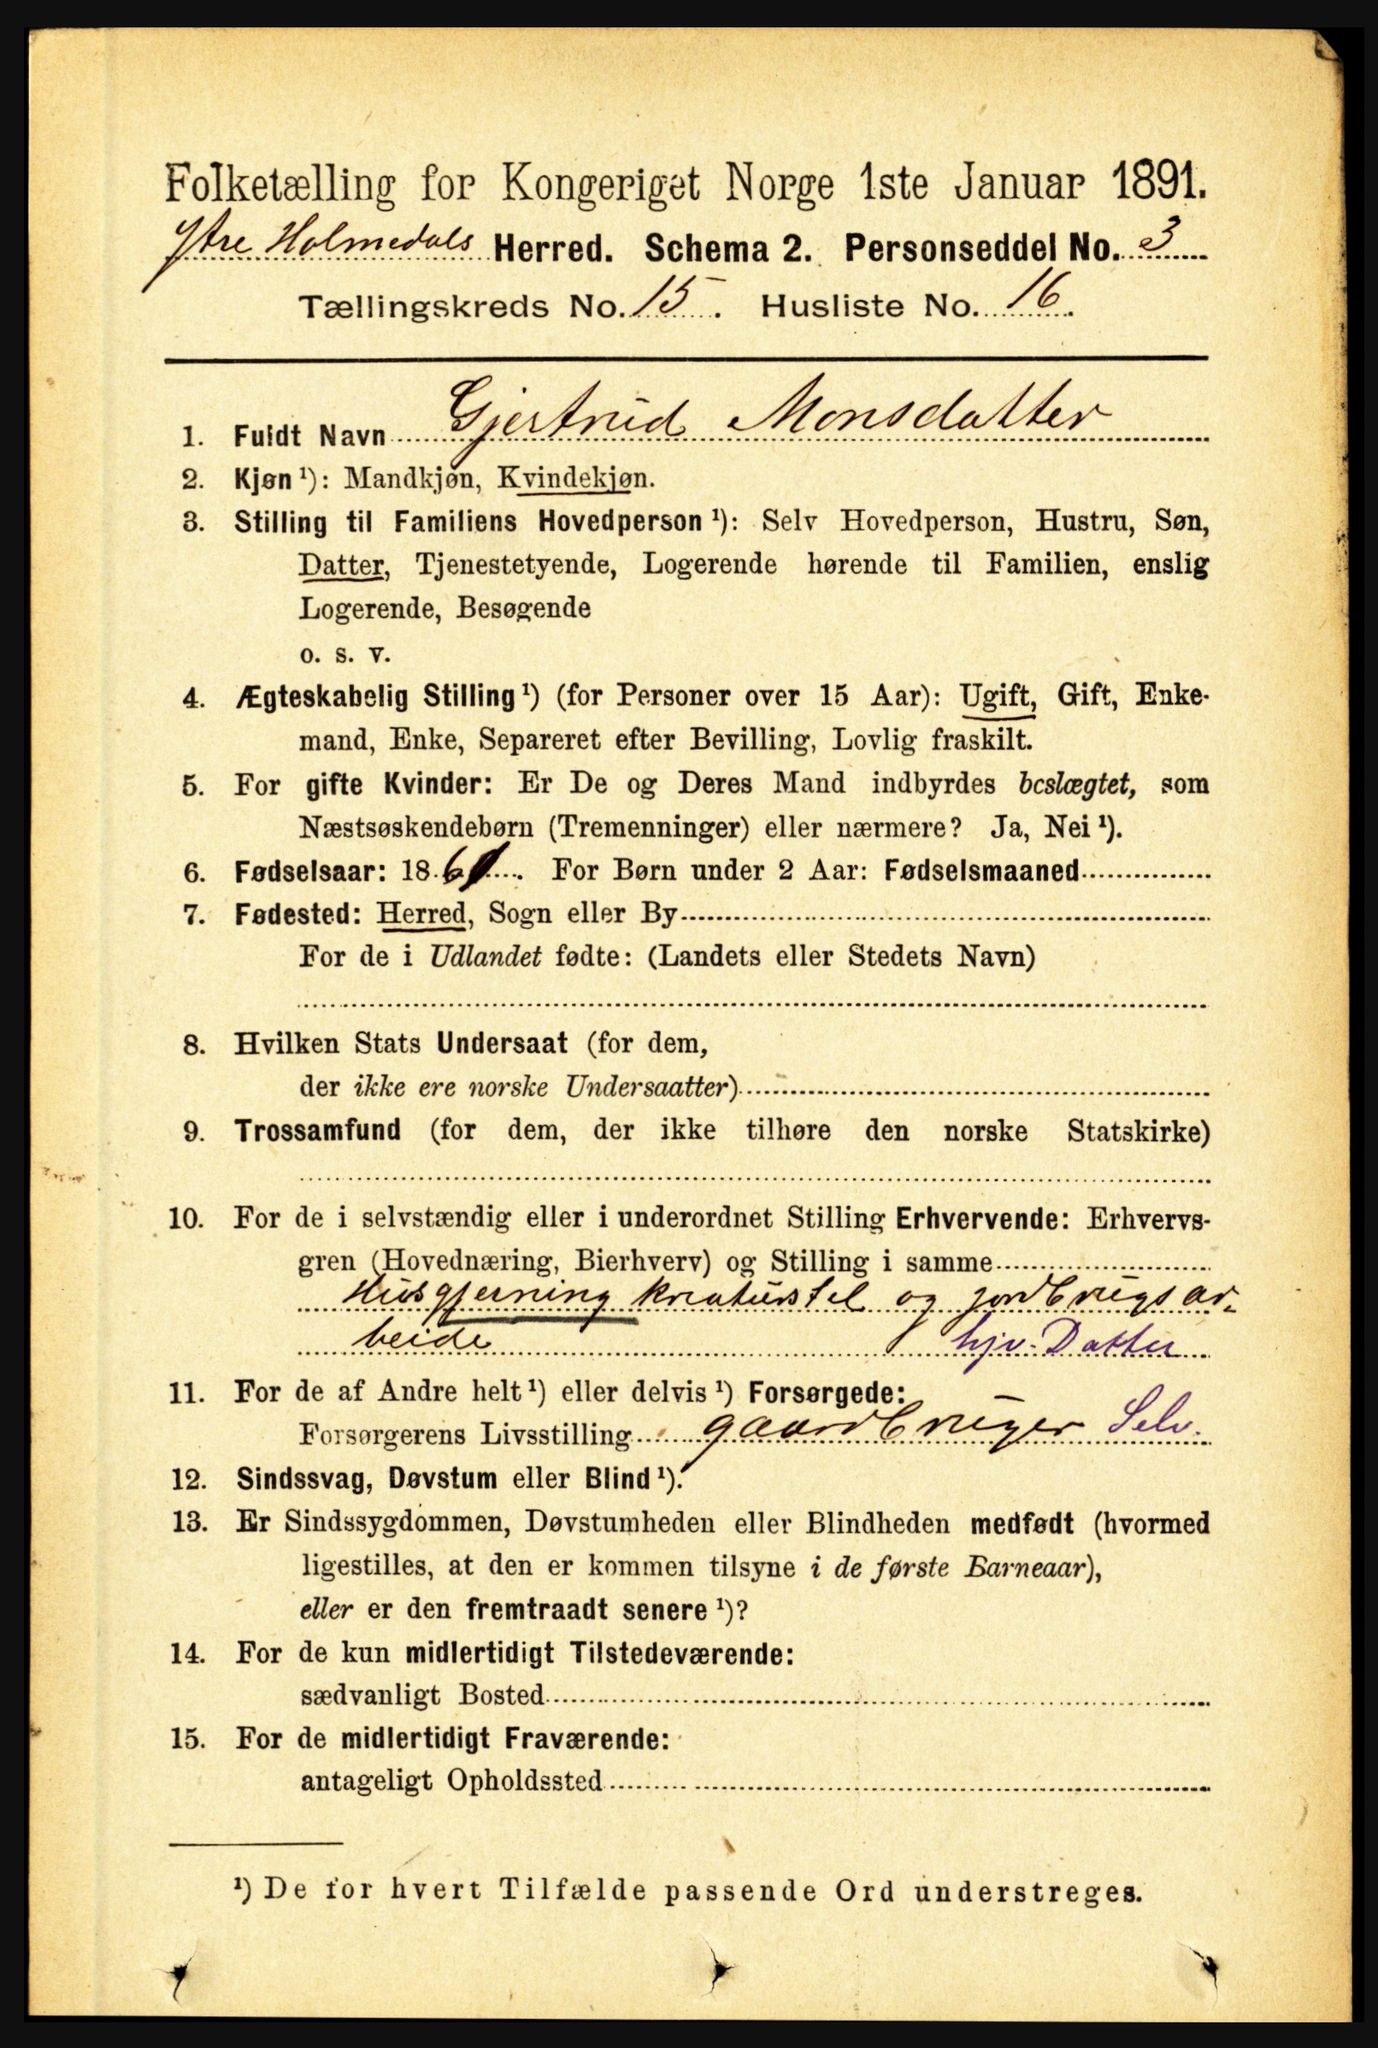 Folketælling for Kongeriget Norge 1ste Januar 1891.
Ytre Holmedals Herred. Schema 2. Personseddel No. 3
Tællingskreds No. 15. Husliste No. 16.
1. Fuldt Navn Gjertrud Monsdatter
2. Kjøn ¹): Mandkjøn, Kvindekjøn.
3. Stilling til Familiens Hovedperson ¹): Selv Hovedperson, Hustru, Søn,
Datter, Tjenestetyende, Logerende hørende til Familien, enslig
Logerende, Besøgende
o. s. v.
4. Ægteskabelig Stilling ¹) (for Personer over 15 Aar): Ugift, Gift, Enke-
mand, Enke, Separeret efter Bevilling, Lovlig fraskilt.
5. For gifte Kvinder: Er De og Deres Mand indbyrdes beslægtet, som
Næstsøskendebørn (Tremenninger) eller nærmere? Ja, Nei ¹).
6. Fødselsaar: 18 . For Børn under 2 Aar: Fødselsmaaned
7. Fødested: Herred, Sogn eller By
For de i Udlandet fødte: (Landets eller Stedets Navn)
8. Hvilken Stats Undersaat (for dem,
der ikke ere norske Undersaatter)
9. Trossamfund (for dem, der ikke tilhøre den norske Statskirke)
10. For de i selvstændig eller i underordnet Stilling Erhvervende: Erhvervs-
gren (Hovednæring, Bierhverv) og Stilling i samme
Husgjerning kreaturstel og jordbrugsar-
beide hjv. Datter
11. For de af Andre helt ¹) eller delvis ¹) Forsørgede:
Forsørgerens Livsstilling gaardbruger Selv.
12. Sindssvag, Døvstum eller Blind ¹).
13. Er Sindssygdommen, Døvstumheden eller Blindheden medfødt (hvormed
ligestilles, at den er kommen tilsyne i de første Barneaar),
eller er den fremtraadt senere ¹)?
14. For de kun midlertidigt Tilstedeværende:
sædvanligt Bosted
15. For de midlertidigt Fraværende:
antageligt Opholdssted
¹) De for hvert Tilfælde passende Ord understreges.